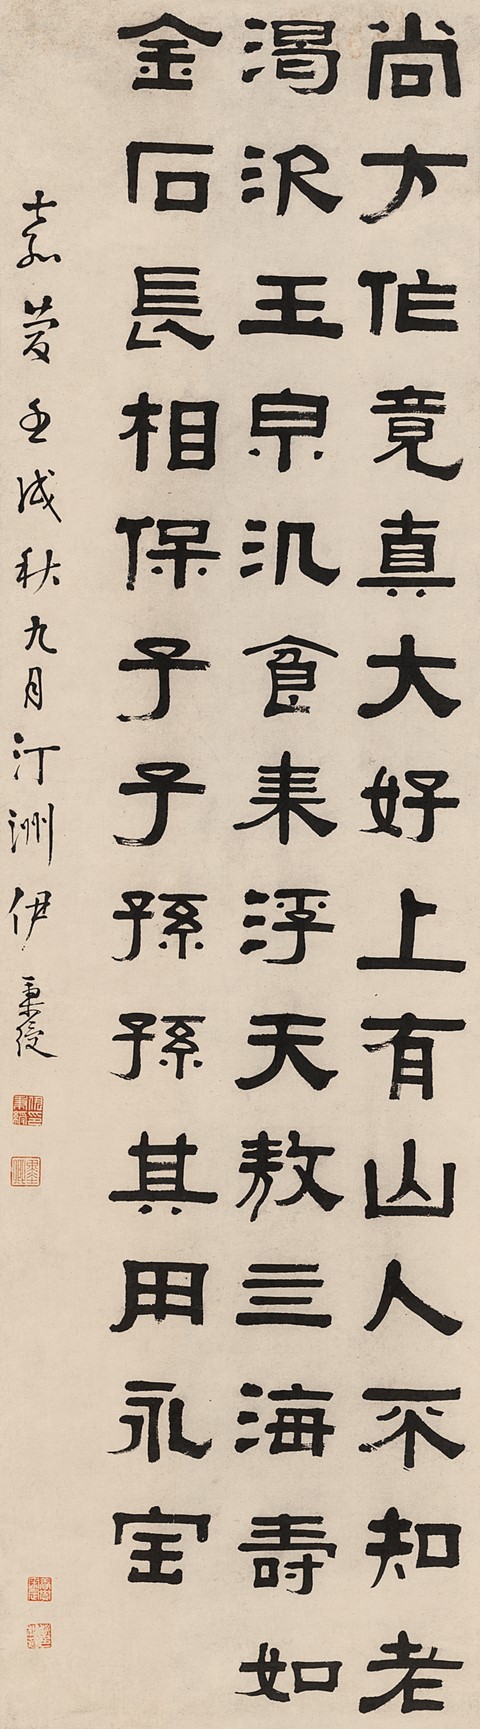 尚方作竟真大好上有山人不知老
渴㳄玉泉汎食耒浮天敖亖海壽如
金石長相保子子孫孫其用永宝
嘉慶壬戌秋九月汀洲伊秉綬